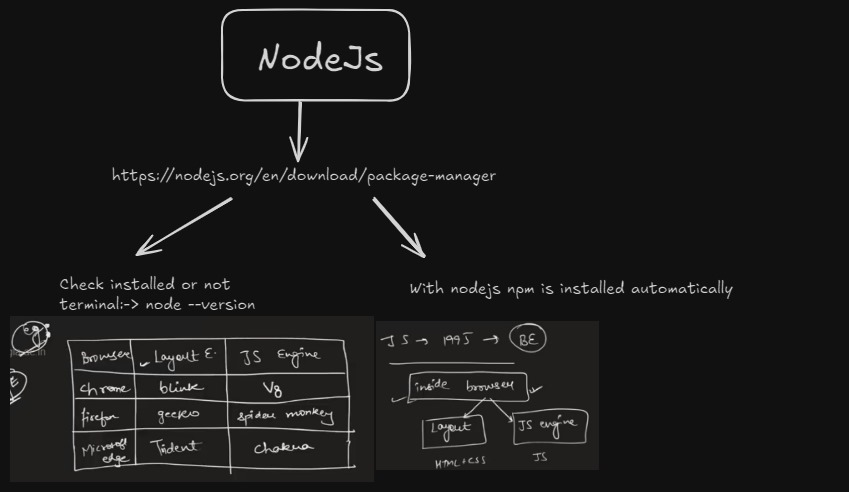 NodeJs
https://nodejs.org/en/download/package-manager
Check installed or not
terminal:-> node --version
With nodejs npm is installed automatically
eg:
Browser Layout E. JS Engine
Chrome blink V8
firefox geeko spider monkey
Microsoft edge Trident Chakua
JS → 1995 → BE
inside browser
Layout JS engine
HTML+CSS JS